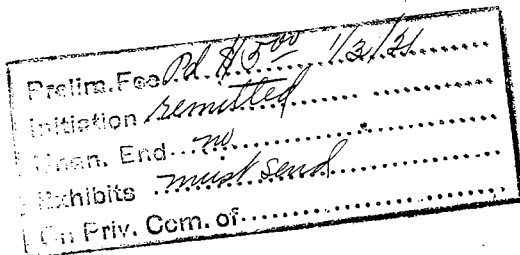 Prelim. Fee Pd $5.00 1/3/21
Initiation remitted
Unan. End no
Exhibits must send
On Priv. Com. of